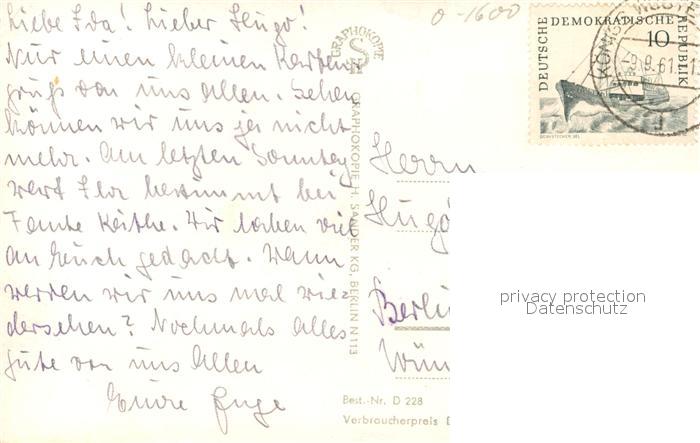 Liebe Ida! Lieber Hugo!
Nur einen kleinen Karten-
gruß von uns allen. Sehen
können wir uns ja nicht
mehr. Am letzten Sonntag
warst Ida bestimmt bei
Tante Käthe. Wir haben viel
an Euch gedacht. Wann
werden wir uns mal wie-
dersehen? Nochmals alles
gute von uns Allen
Eure Inge
GRAPHOKOPIE
GRAPHOKOPIE H. SANDER KG, BERLIN N 113
0-1600
DEUTSCHE DEMOKRATISCHE REPUBLIK
10
-9.9.61.
Herrn
Hugo
Berlin
Best.-Nr. D 228
Verbraucherpreis
privacy protection
Datenschutz